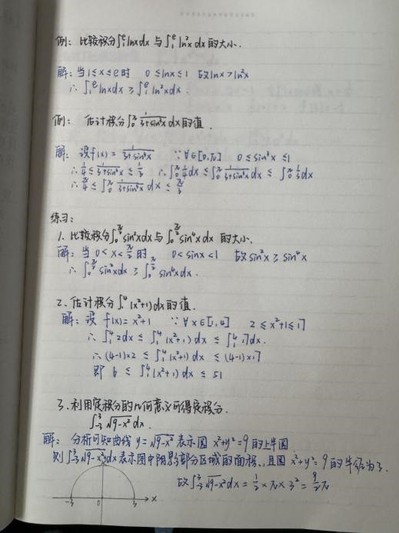 例: 比较积分∫₁ᵉlnxdx 与∫₁ᵉln²xdx 的大小.
解: 当1≤x≤e时 0≤lnx≤1 故lnx>ln²x
∴ ∫₁ᵉlnxdx > ∫₁ᵉln²xdx.
例: 估计积分∫ 1/(3+sin²x) dx的值.
解: 设f(x)= 1/(3+sin²x) ∵ ∀∈[0,π] 0≤sin²x≤1
∴ 1/4≤1/(3+sin²x)≤1/3 ∴ ∫1/4dx≤∫1/(3+sin²x)dx≤∫1/3dx
∴ π/4≤∫1/(3+sin²x)dx≤π/3
练习:
1. 比较积分∫sin²xdx与∫sin⁴xdx 的大小.
解: 当0<x<π/2时 0<sinx<1 故sin²x>sin⁴x
∴ ∫sin²xdx>∫sin⁴xdx.
2. 估计积分∫₁⁴(x²+1)dx的值.
解: 设 f(x)=x²+1 ∵ ∀x∈[1,4] 2≤x²+1≤17
∴ ∫₁⁴2dx≤∫₁⁴(x²+1)dx≤∫₁⁴17dx.
∴ (4-1)×2≤∫₁⁴(x²+1)dx≤(4-1)×17
即 6≤∫₁⁴(x²+1)dx≤51
3. 利用定积分的几何意义可得定积分.
∫√9-x² dx.
解: 分析可知曲线 y=√9-x² 表示圆 x²+y²=9的上半圆
则∫√9-x²dx表示图中阴影部分区域的面积, 且圆 x²+y²=9的半径为3
故∫√9-x²dx=1/2×π×3²=9/2π
-3 3 x